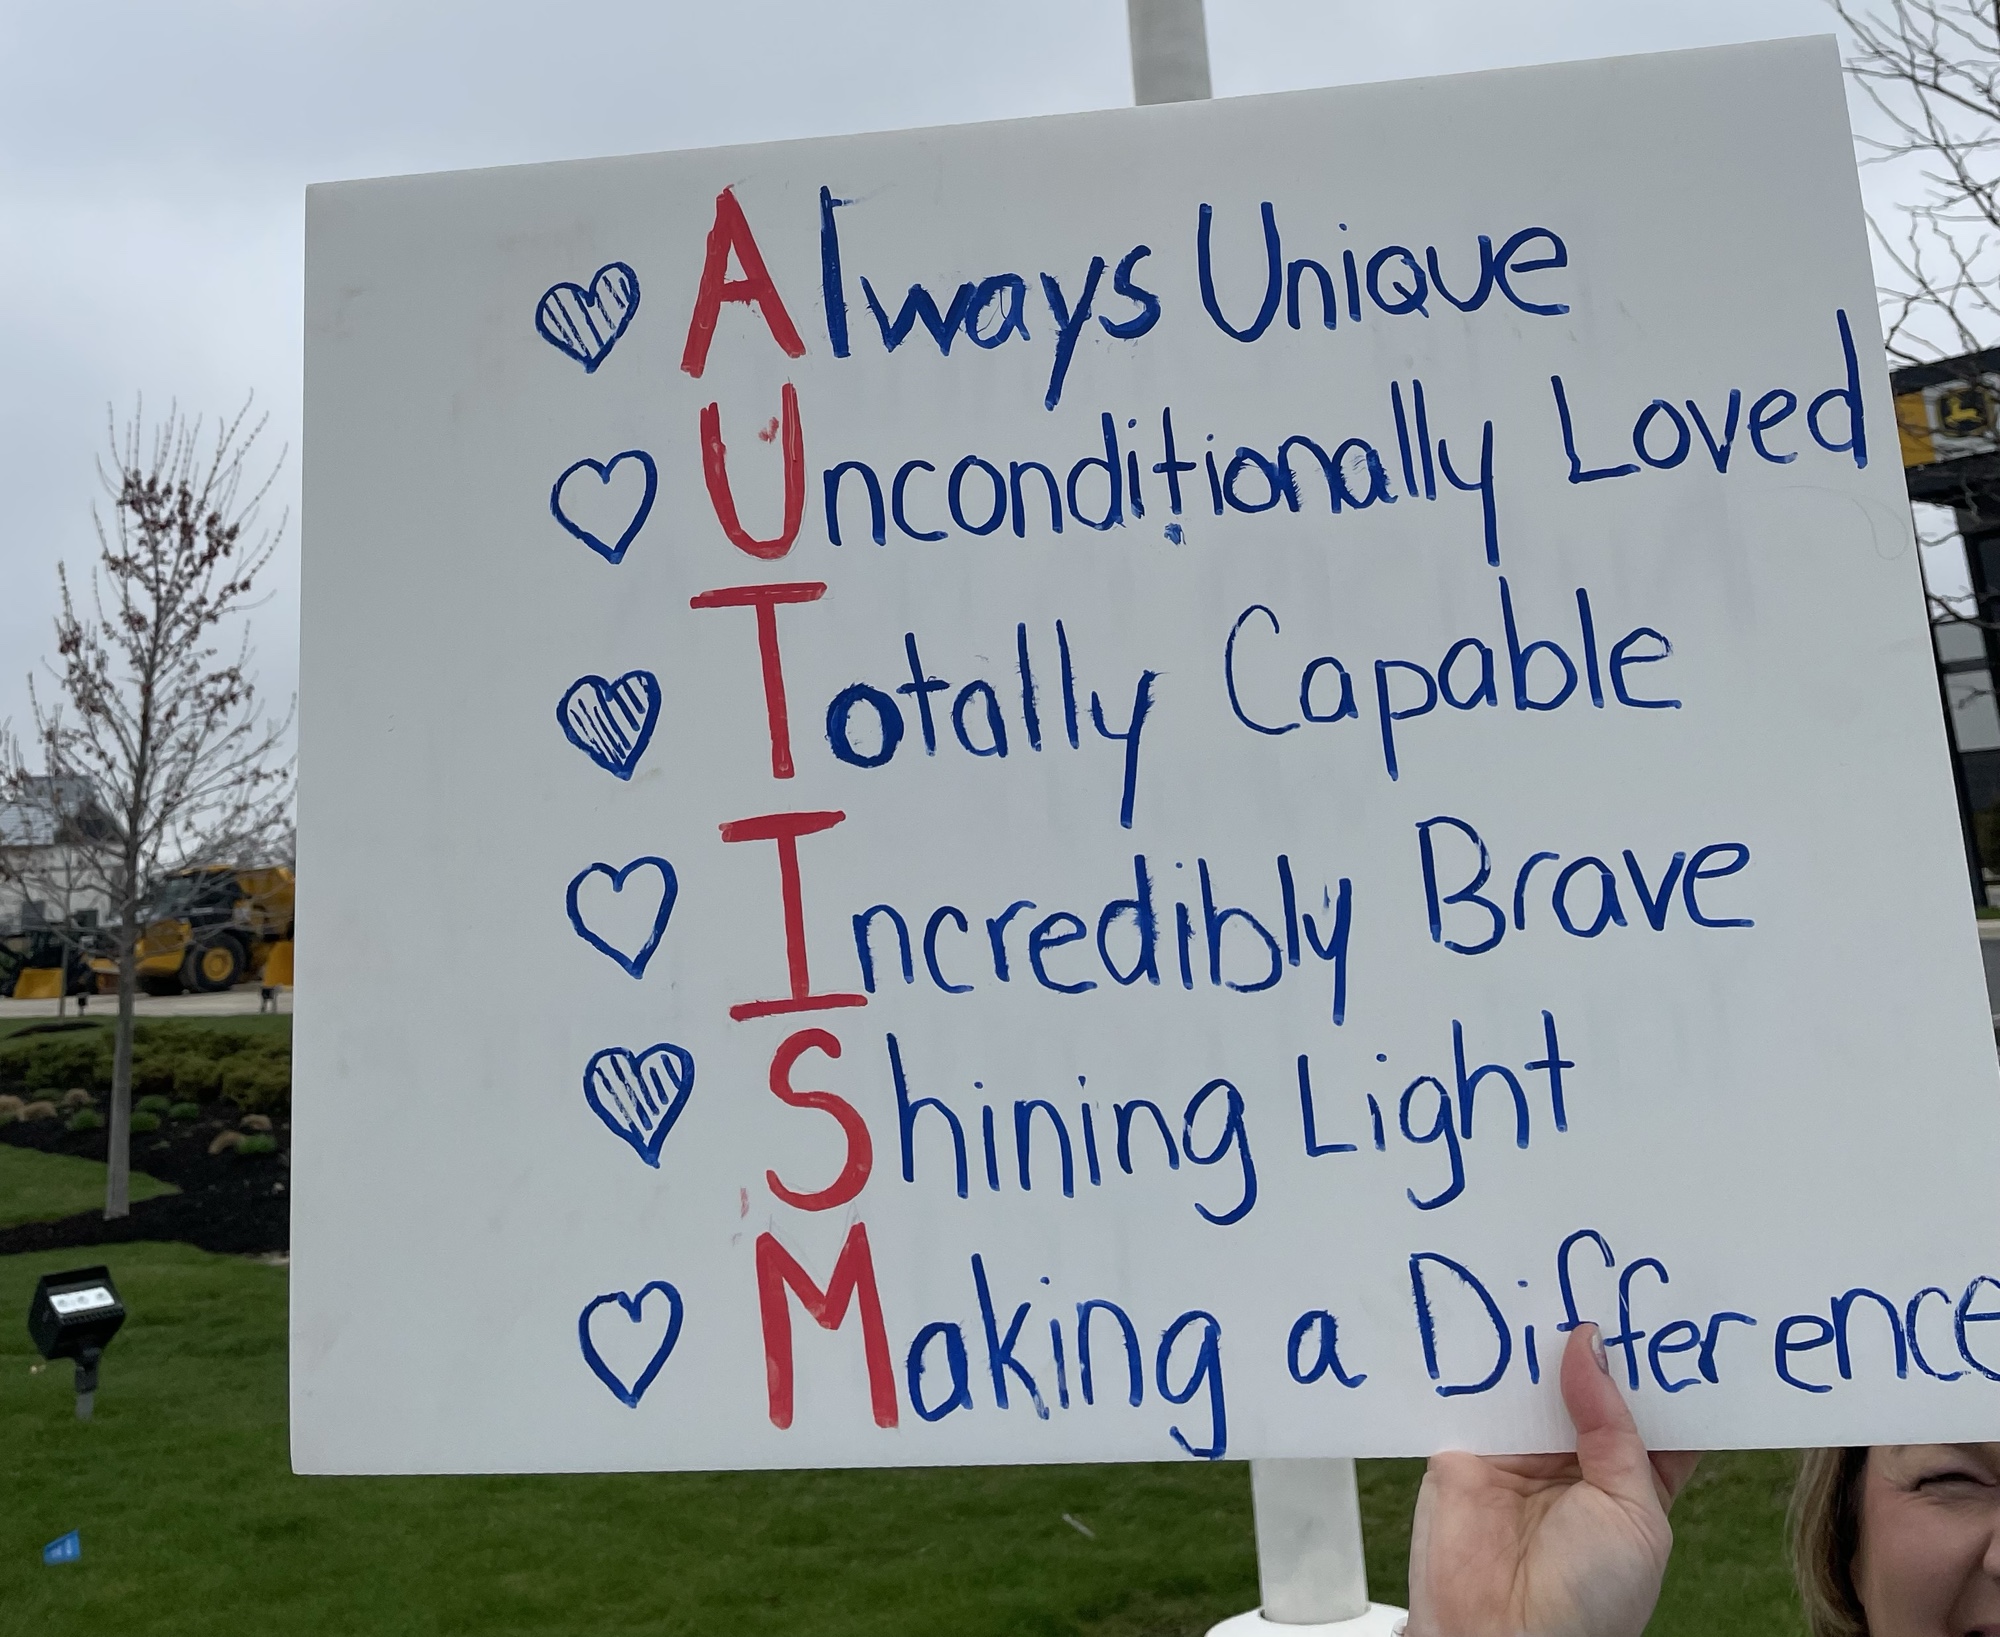 Always Unique
Unconditionally Loved
Totally Capable
Incredibly Brave
Shining Light
Making a Difference